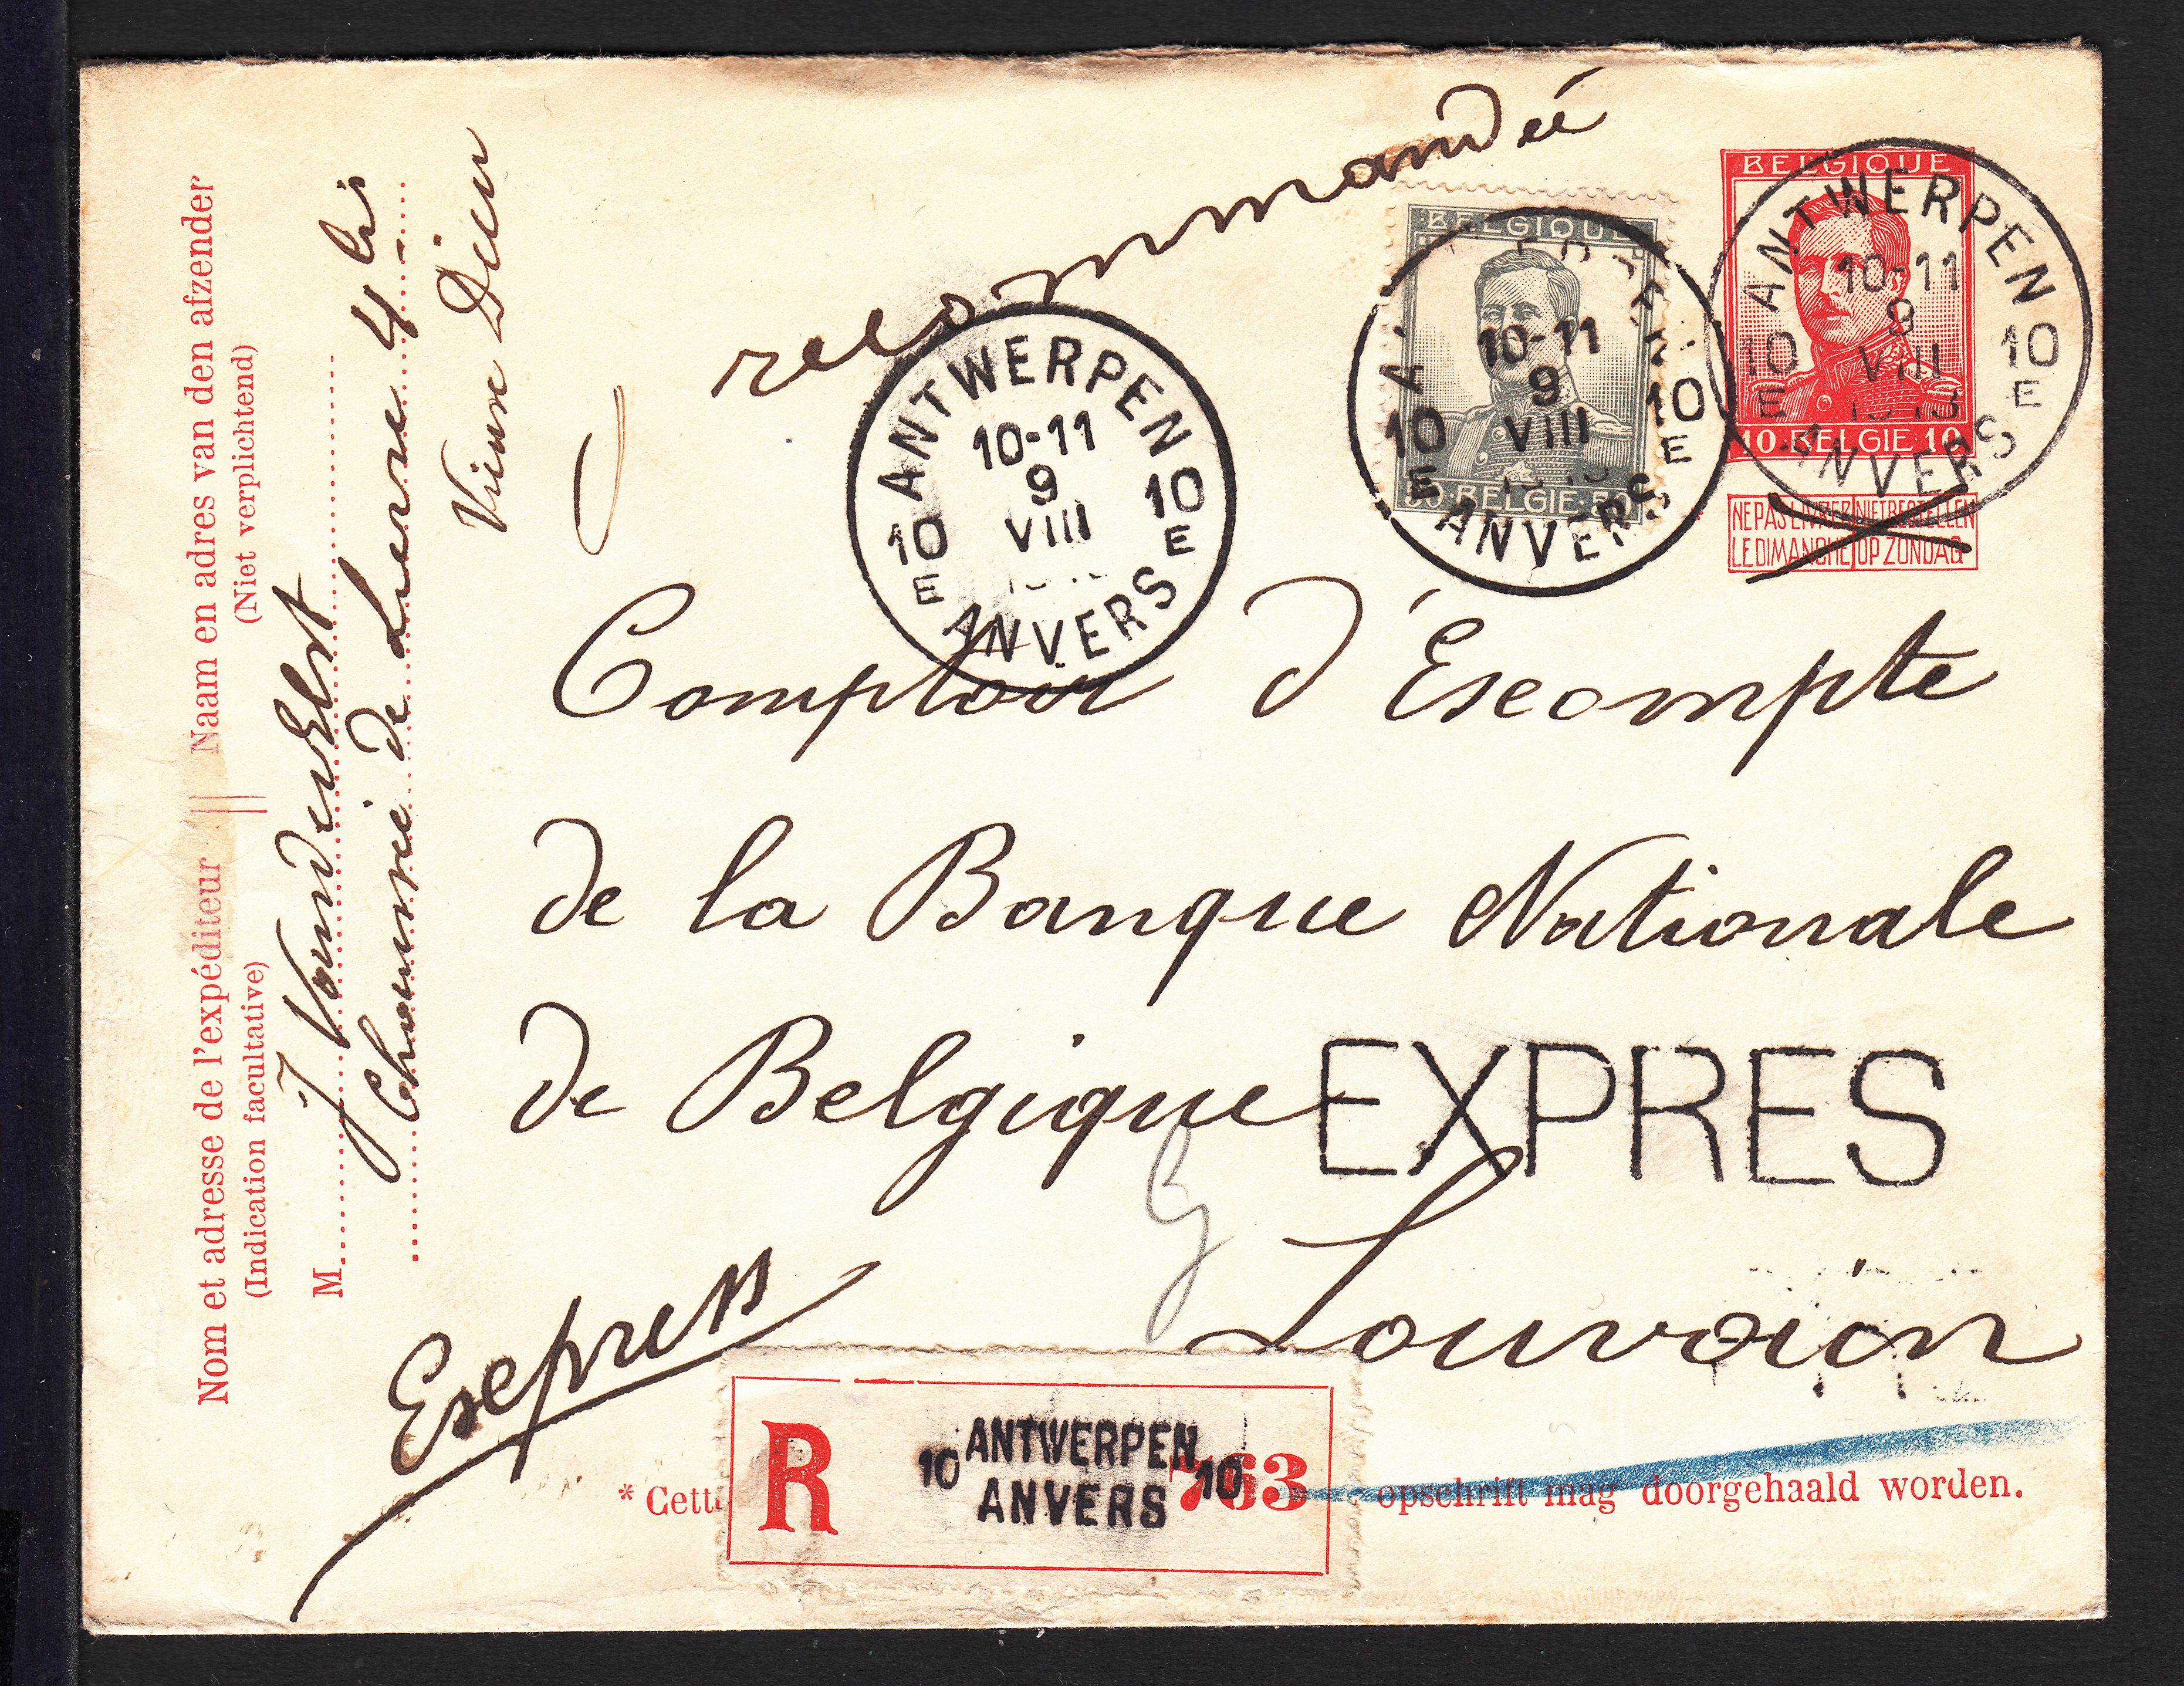 recommandée
BELGIQUE
50·BELGIE·50
ANVERS
10-11
9
VIII
10 10
E E
BELGIQUE
10·BELGIE·10
NE PAS LIVRER NIET BESTELLEN
LE DIMANCHE OP ZONDAG
ANTWERPEN
10-11
9
VIII
10 10
E E
ANVERS
ANTWERPEN
10-11
9
VIII
10 10
E E
ANVERS
Comptoir d'Escompte
de la Banque Nationale
de Belgique
EXPRES
Louvain
Express
R
10 ANTWERPEN 10
ANVERS
763
* Cett
opschrift mag doorgehaald worden.
Nom et adresse de l'expéditeur || Naam en adres van den afzender
(Indication facultative) (Niet verplichtend)
M. J Vanderelst
Chaussée de Lierre 4 bis
Vieux Dieu